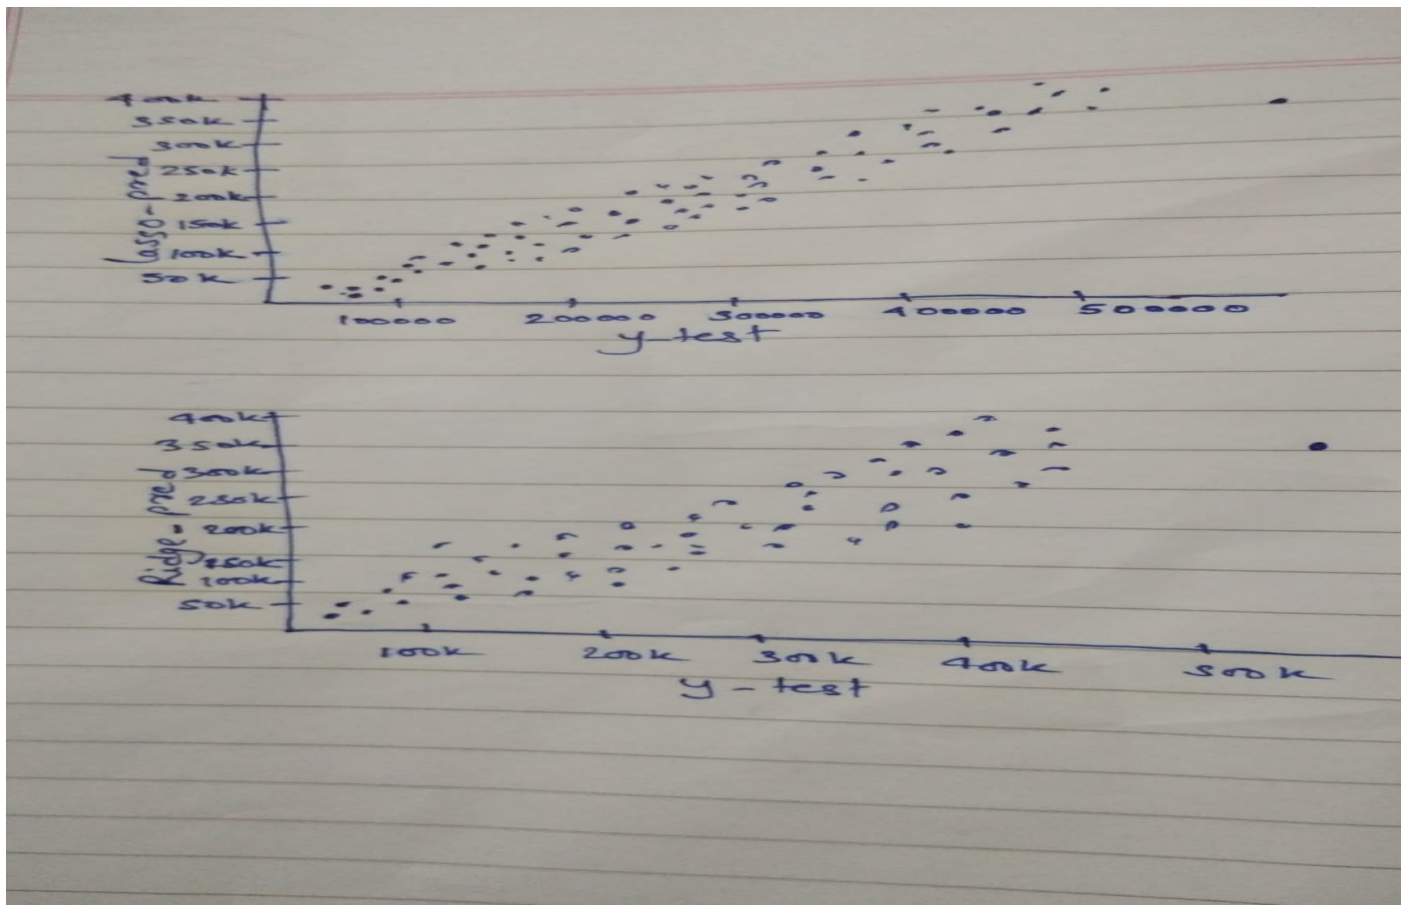 400k
350k
300k
250k
200k
150k
100k
50k
Lasso-pred
100000 200000 300000 400000 500000
y-test
400k
350k
300k
250k
200k
150k
100k
50k
Ridge-pred
100k 200k 300k 400k 500k
y-test